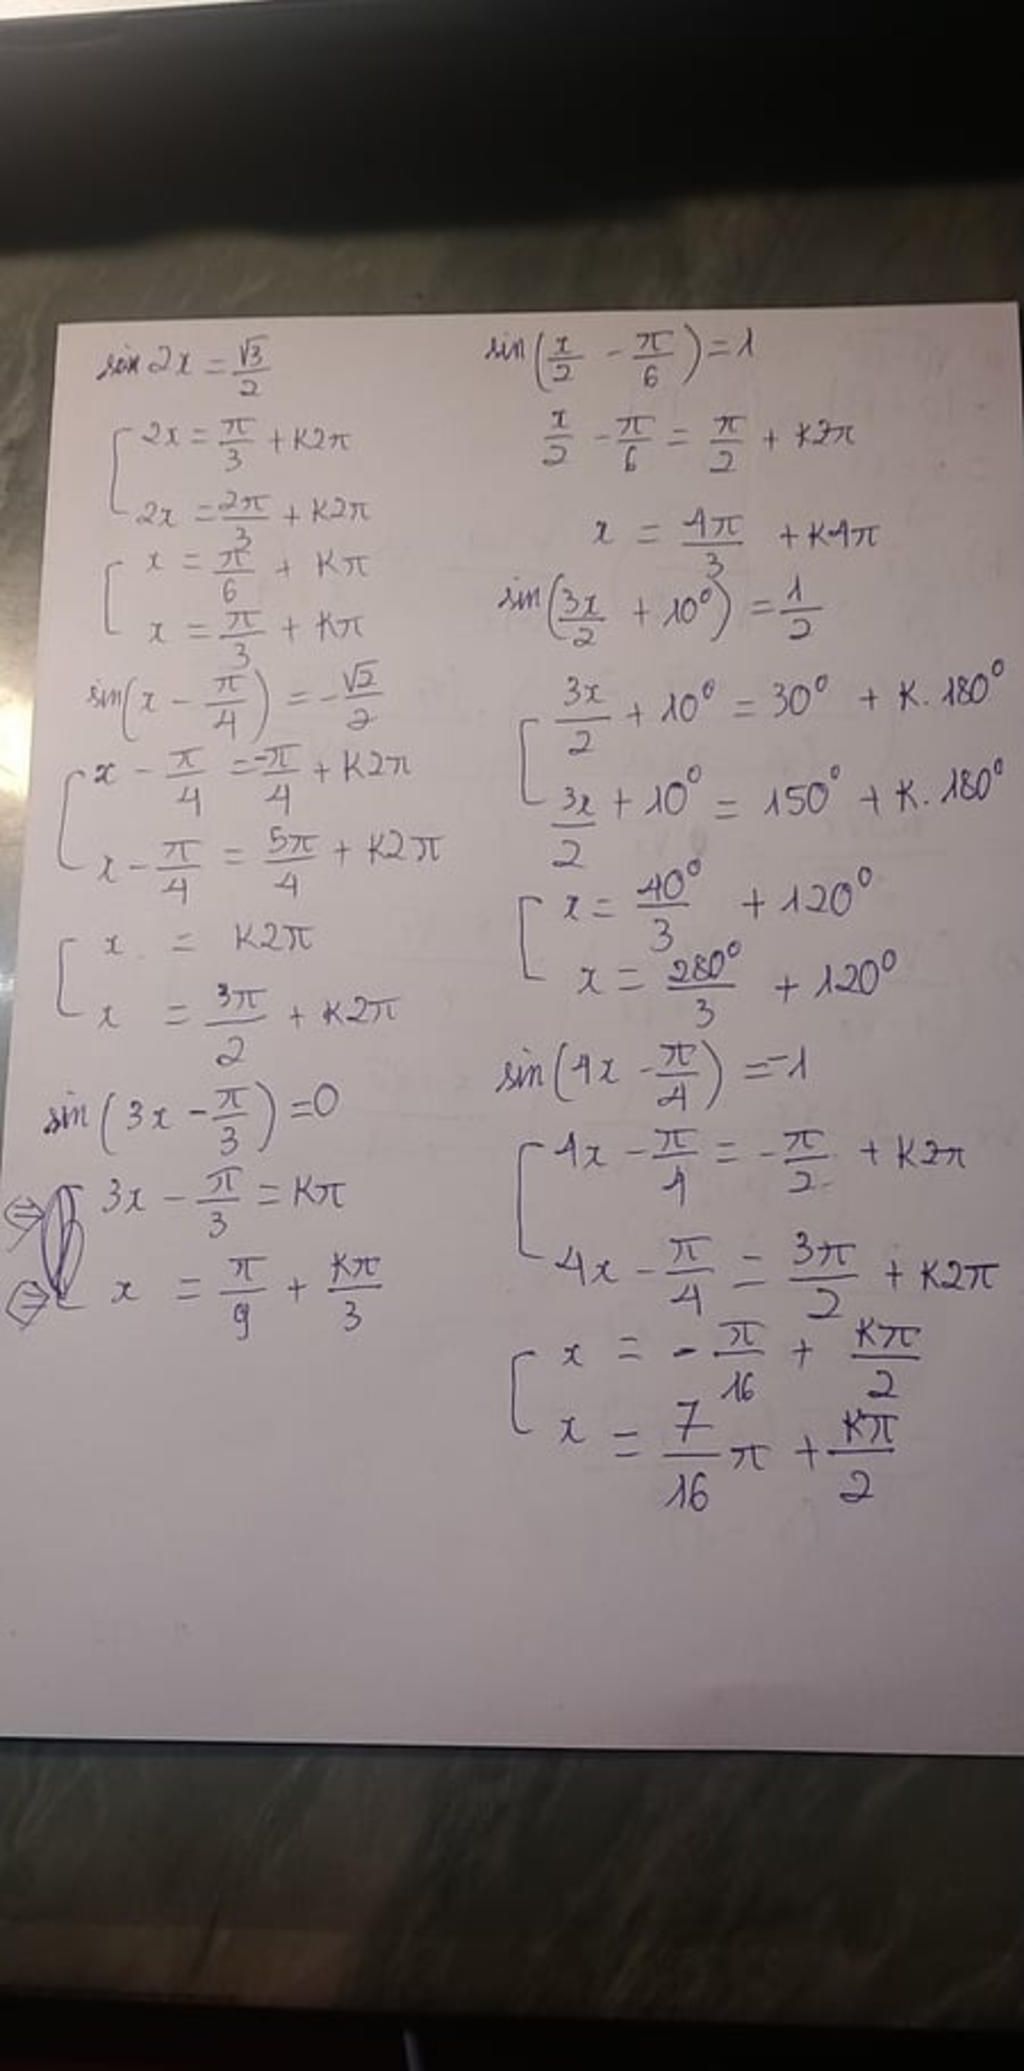 sin 2x = √3/2
[ 2x = π/3 + K2π
2x = 2π/3 + K2π
[ x = π/6 + Kπ
x = π/3 + Kπ
sin(x - π/4) = -√2/2
[ x - π/4 = -π/4 + K2π
x - π/4 = 5π/4 + K2π
[ x = K2π
x = 3π/2 + K2π
sin(3x - π/3) = 0
⇔ 3x - π/3 = Kπ
⇔ x = π/9 + Kπ/3
sin(x/2 - π/6) = 1
x/2 - π/6 = π/2 + K2π
x = 4π/3 + K4π
sin(3x/2 + 10⁰) = 1/2
[ 3x/2 + 10⁰ = 30⁰ + K. 180⁰
3x/2 + 10⁰ = 150⁰ + K. 180⁰
[ x = 40⁰/3 + 120⁰
x = 280⁰/3 + 120⁰
sin(4x - π/4) = -1
[ 4x - π/4 = -π/2 + K2π
4x - π/4 = 3π/2 + K2π
[ x = -π/16 + Kπ/2
x = 7/16 π + Kπ/2